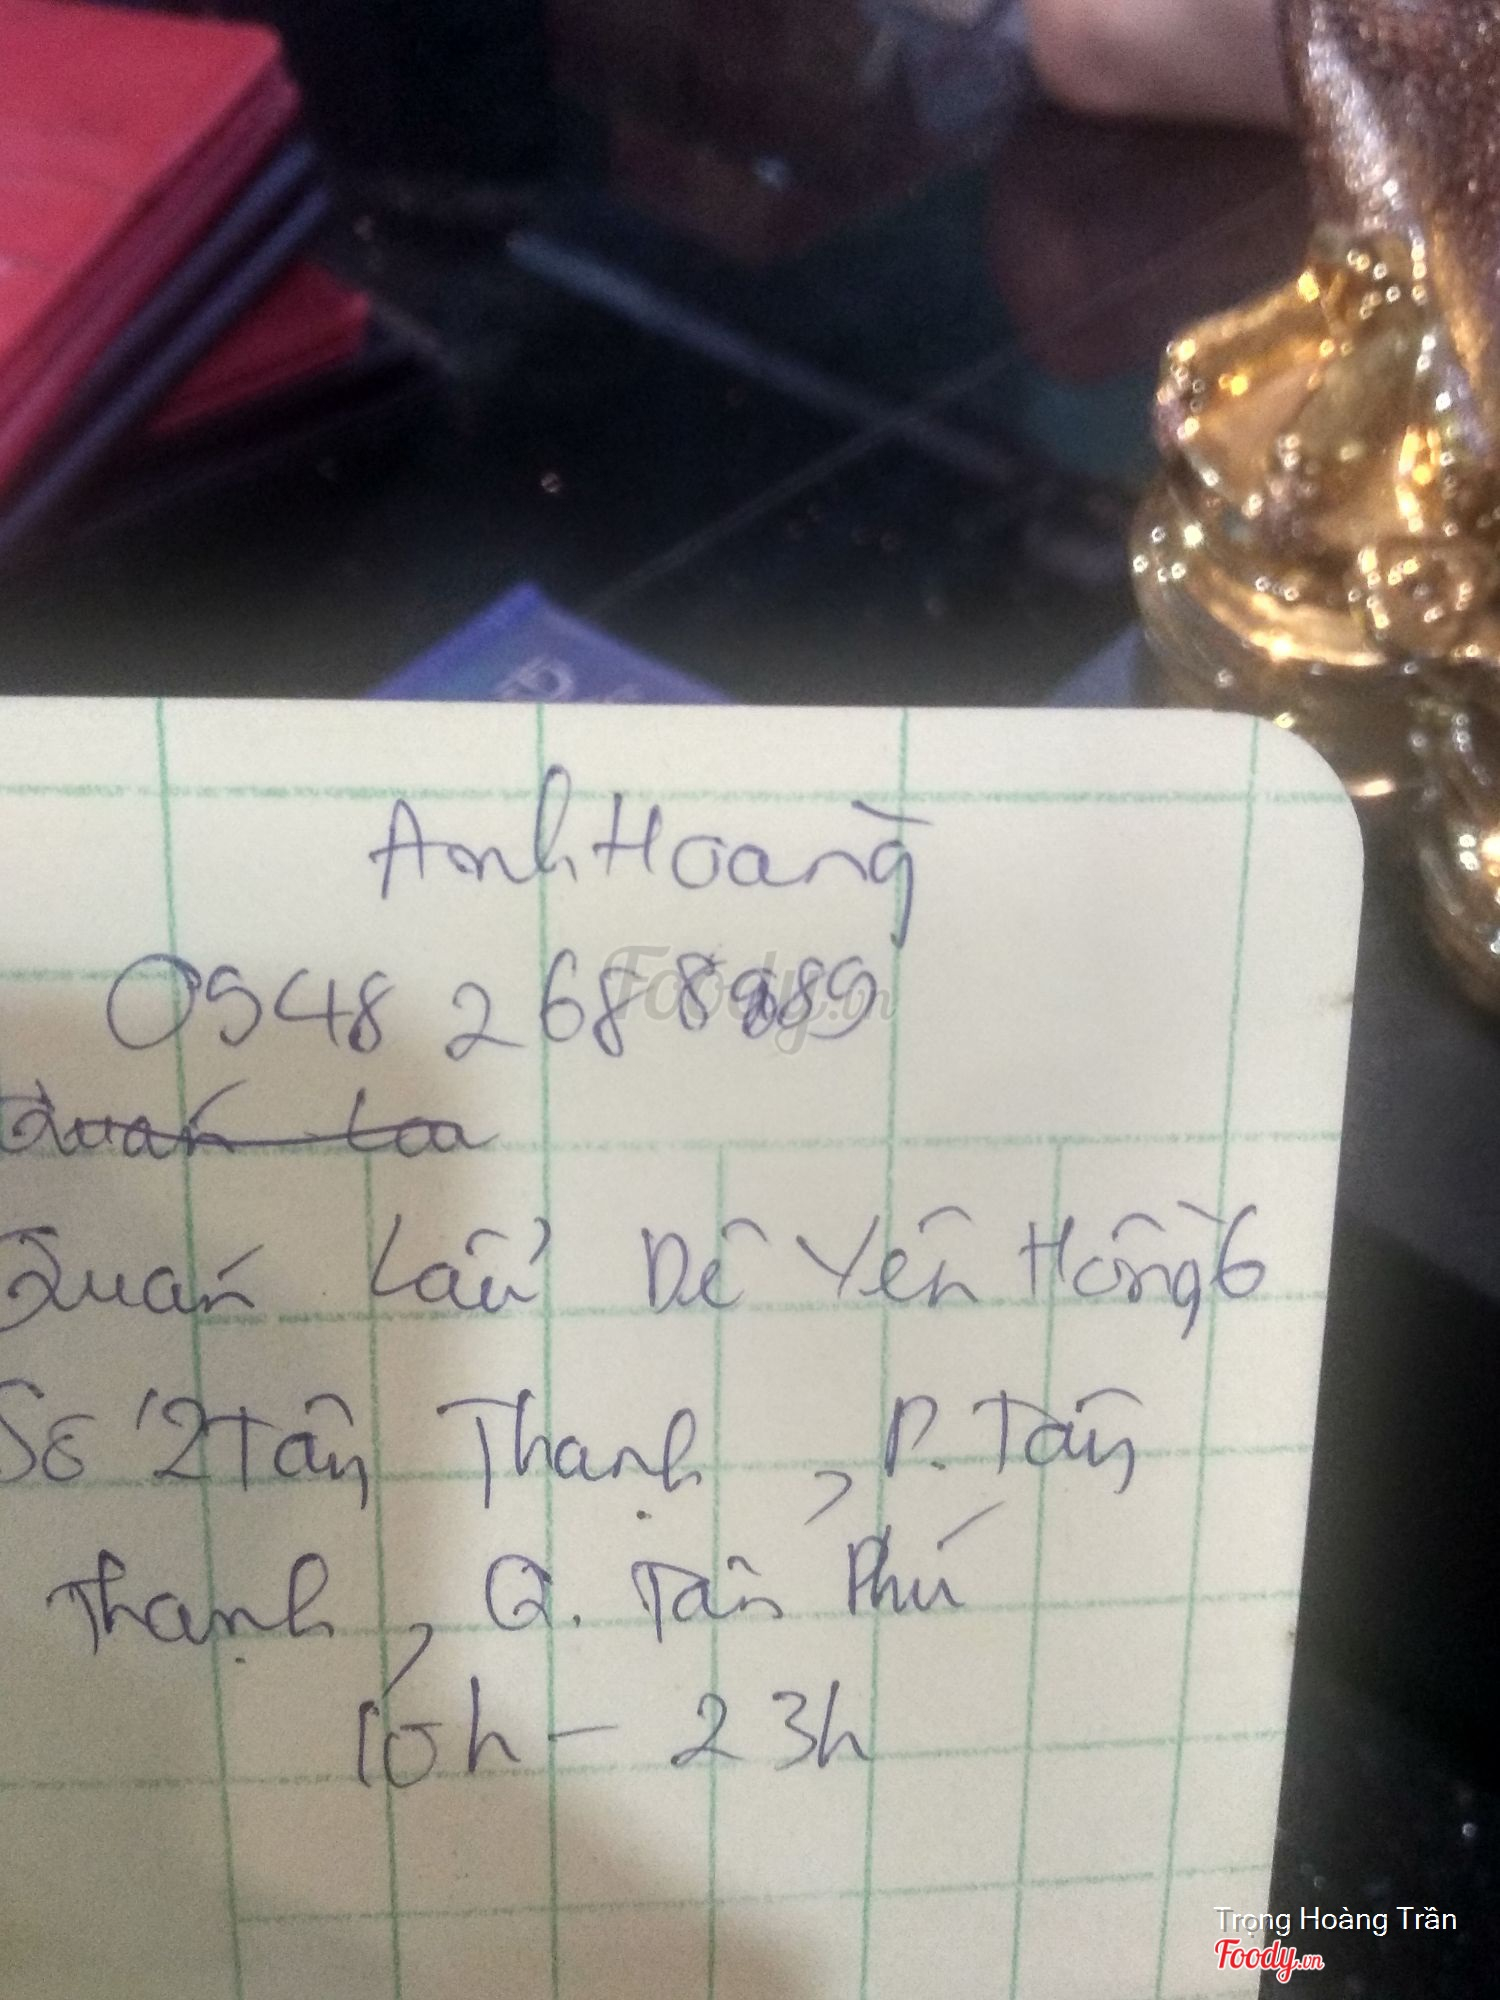 Anh Hoàng
0948 268 8989
Quán Lẩu Dê Yên Hồng 6
Số 2 Tân Thạnh, P. Tân
Thạnh, Q. Tân Phú
10h - 23h
Trọng Hoàng Trần
Foody.vn